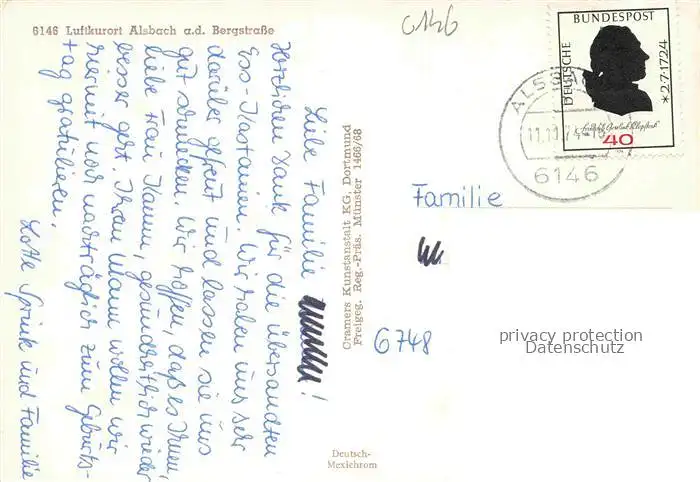 6146 Luftkurort Alsbach a.d. Bergstraße
6146
Liebe Familie !
Herzlichen Dank für die übersandten
Ess-Kastanien. Wir haben uns sehr
darüber gefreut und lassen sie uns
gut schmecken. Wir hoffen, daß es Ihnen,
liebe Frau Kamm, gesundheitlich wieder
besser geht. Ihrem Mann wollen wir
hiermit noch nachträglich zum Geburts-
tag gratulieren.
Lotte Sprink und Familie
Cramers Kunstanstalt KG, Dortmund
Freigeg. Reg.-Präs. Münster 1466/68
Deutsch-
Mexichrom
DEUTSCHE BUNDESPOST
*2.7.1724
Friedrich Gottlieb Klopstock
40
6146
Familie
6748
privacy protection
Datenschutz